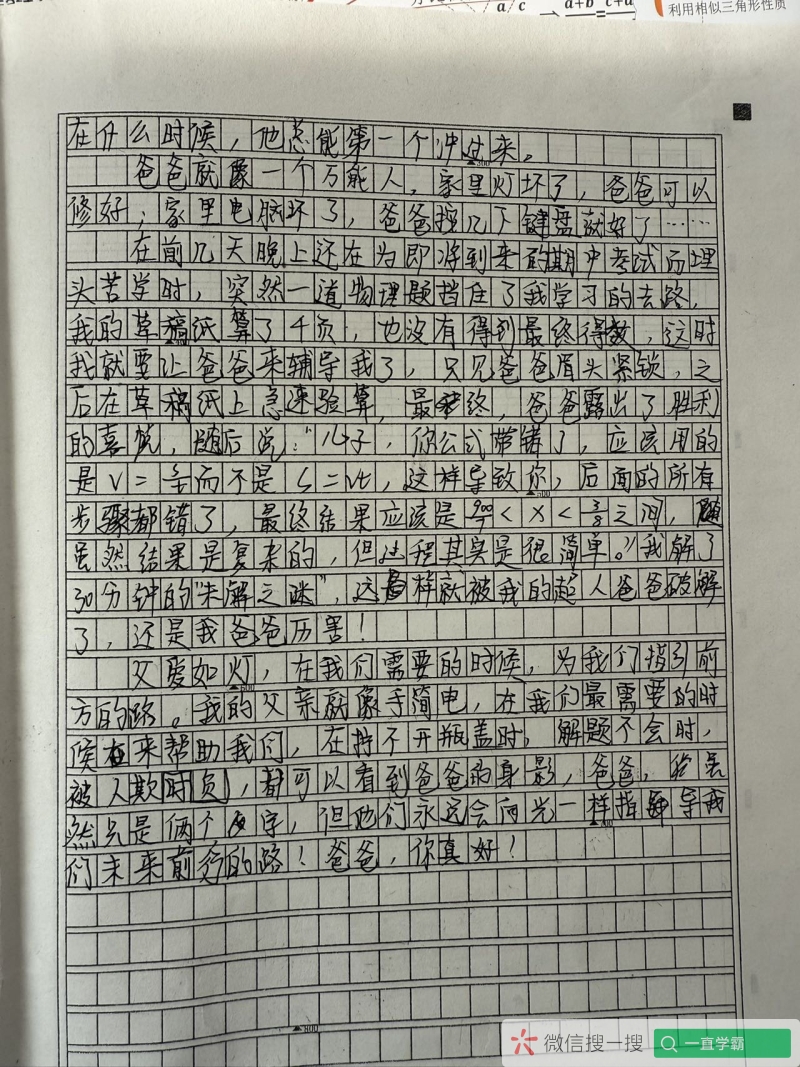 a/c → a+b = c+d
利用相似三角形性质
在什么时候，他总能第一个冲过来。
爸爸就像一个万能人，家里灯坏了，爸爸可以
修好；家里电脑坏了，爸爸按几下键盘就好了……
在前几天晚上还在为即将到来的期中考试而埋
头苦学时，突然一道物理题挡住了我学习的去路，
我的草稿纸算了4页，也没有得到最终得数，这时
我就要让爸爸来辅导我了，只见爸爸眉头紧锁，之
后在草稿纸上急速验算，最终，爸爸露出了胜利
的喜悦，随后说："儿子，你公式带错了，应该用的
是V=而不是S=Vt，这样导致你，后面的所有
步骤都错了，最终结果应该是<X<3/8之间，
虽然结果是复杂的，但过程其实是很简单。"我解了
30分钟的"未解之迷"，这样就被我的超人爸爸破解
了，还是我爸爸厉害！
父爱如灯，在我们需要的时候，为我们指引前
方的路。我的父亲就像手简电，在我们最需要的时
候来帮助我们，在拧不开瓶盖时，解题不会时，
被人欺负时，都可以看到爸爸的身影，爸爸，虽
然只是俩个字，但他们永远会向光一样指导我
们未来前行的路！爸爸，你真好！
500
600
700
800
微信搜一搜 一直学霸